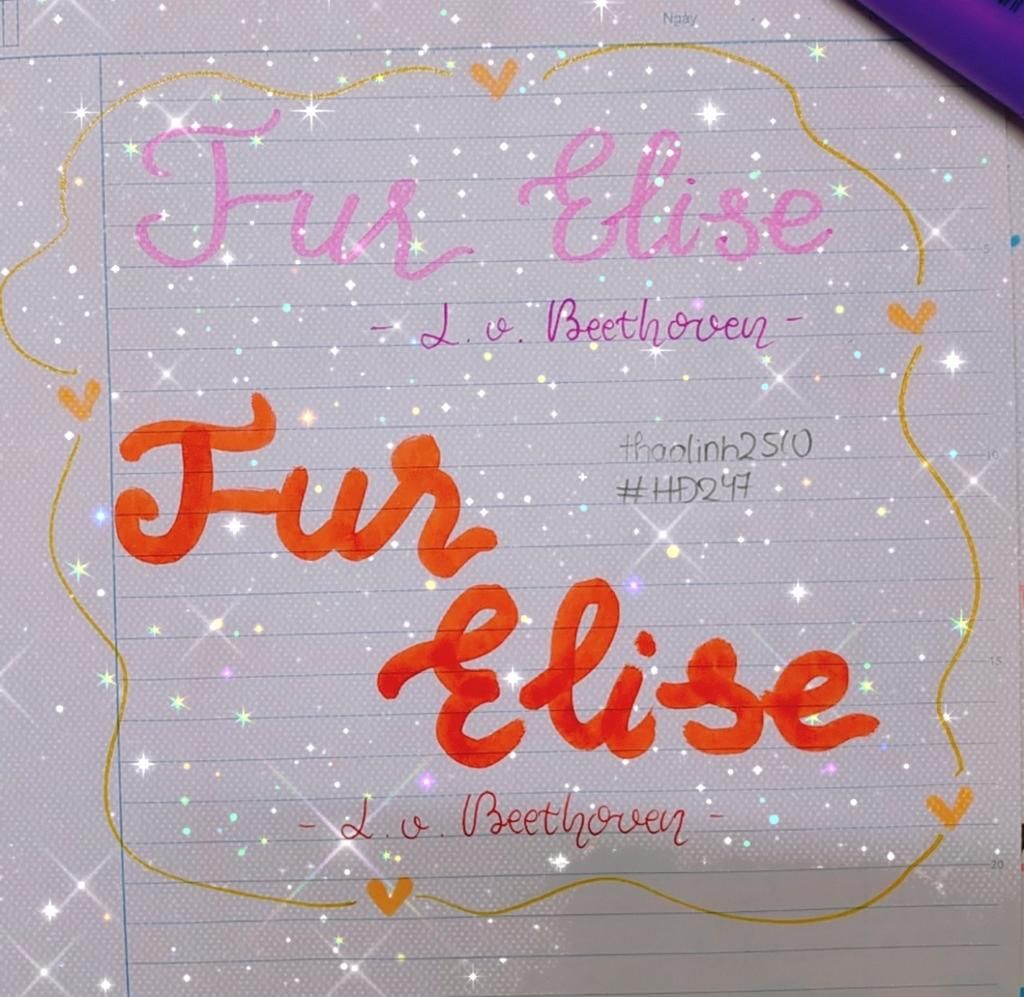 Ngày
Fur Elise
- L. v. Beethoven -
5
Fur
thaolinh2510
#HD247
10
Elise
15
- L. v. Beethoven -
20